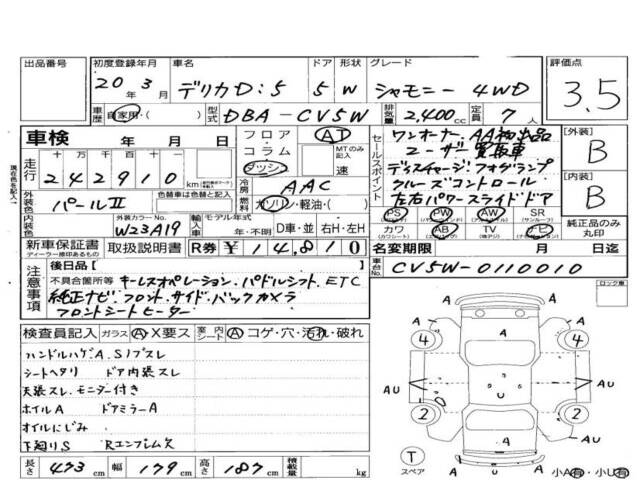 出品番号 初度登録年月 車名 ドア 形状 グレード 評価点
20年 3月 デリカD:5 5 W シャモニー 4WD 3.5
車歴 自家用・( ) 型式 DBA-CV5W 排気量 2,400cc 定員 7人
車検 年 月 日 フロア・コラム ダッシュ AT MTのみ記入 速
セールスポイント ワンオーナー、AA初出品
ユーザー買取車
ディスチャージ・フォグランプ
クルーズコントロール
左右パワースライドドア
[外装] B
[内装] B
走行 十 万 千 百 十 一
242910 km
冷房 AAC
燃料 ガソリン・軽油・( )
外装色 パールII 色替車は色替えに記入
内装色 外装カラーNo. W23A19 輸入車 モデル年式 年・不明 D車・並 右H・左H
PS PW AW SR
カワ AB TV ナビ
純正品のみ丸印
新車保証書 取扱説明書 R券 ¥14,810
ディーラー捺印あるもの
名変期限 月 日迄
車台No. CV5W-0110010
注意事項 後日品[ ]
不具合箇所等 キーレスオペレーション.パドルシフト.ETC
純正ナビ.フロント.サイド.バックカメラ
フロントシートヒーター
ロック車
検査員記入 ガラス A・X要ス 室内シート A コゲ・穴・汚れ・破れ
ハンドルハゲA.Sノブスレ
シートヘタリ ドア内装スレ
天張スレ.モニター付き
ホイルA ドアミラーA
オイルにじみ
下廻りS Rエンブレム欠
長さ 473cm 幅 179cm 高さ 187cm 積載量 kg
A A A
4 4
A AU U AU
2 2
A U A
T スペア
A U A
小A有・小U有